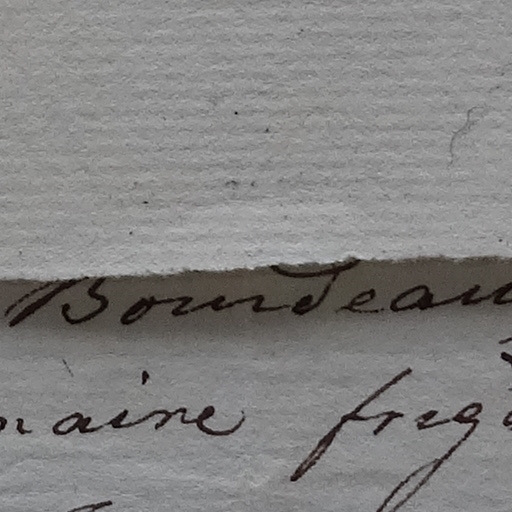 Bourdeau
naire freg